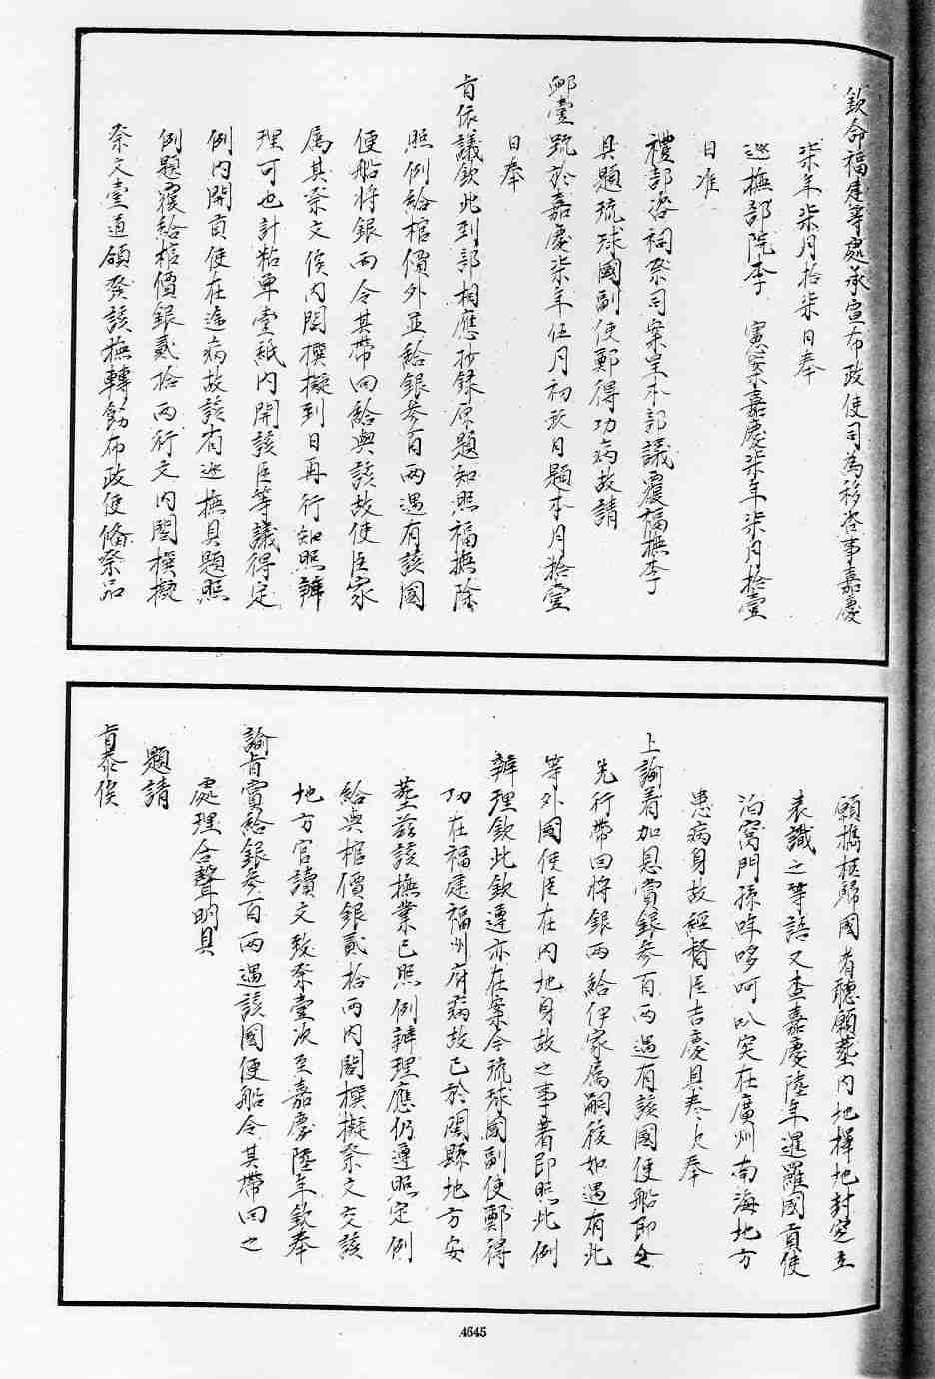 欽命福建等處承宣布政使司為移咨事嘉慶
柒年柒月拾柒日奉
巡撫部院李 憲案嘉慶柒年柒月拾壹
日准
禮部咨祠祭司案呈本部議覆福撫李
具題琉球國副使鄭得功病故請
卹壹疏於嘉慶柒年伍月初玖日題本月拾壹
日奉
旨依議欽此到部相應抄錄原題知照福撫除
照例給棺價外並給銀叁百兩遇有該國
便船將銀兩令其帶回給與該故使臣家
屬其祭文俟內閣撰擬到日再行知照辦
理可也計粘單壹紙內開該臣等議得定
例內開貢使在途病故該省巡撫具題照
例題覆給棺價銀貳拾兩行文內閣撰擬
祭文壹道頒發該撫轉飭布政使備祭品
願搗柩歸國者聽願塟內地擇地封窆立
表識之等語又查嘉慶陸年暹羅國貢使
泊窩門孫哖哆呵叭突在廣州南海地方
患病身故經督臣吉慶具奏欠奉
上諭着加恩賞銀叁百兩遇有該國便船即令
先行帶回將銀兩給伊家屬嗣後如遇有此
等外國使臣在內地身故之事著即照此例
辦理欽此欽遵亦在案今琉球國副使鄭得
功在福建福州府病故已於閩縣地方安
塟茲該撫業已照例辦理應仍遵照定例
給與棺價銀貳拾兩內閣撰擬祭文交該
地方官讀文致祭壹次至嘉慶陸年欽奉
諭旨賞給銀叁百兩遇該國便船令其帶回之
處理合聲明具
題請
旨恭俟
4645